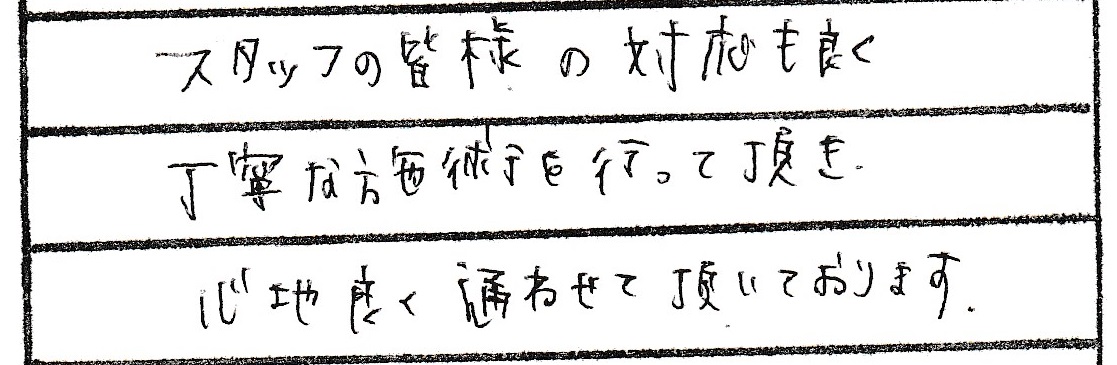 スタッフの皆様の対応も良く
丁寧な施術を行って頂き.
心地良く通わせて頂いております.